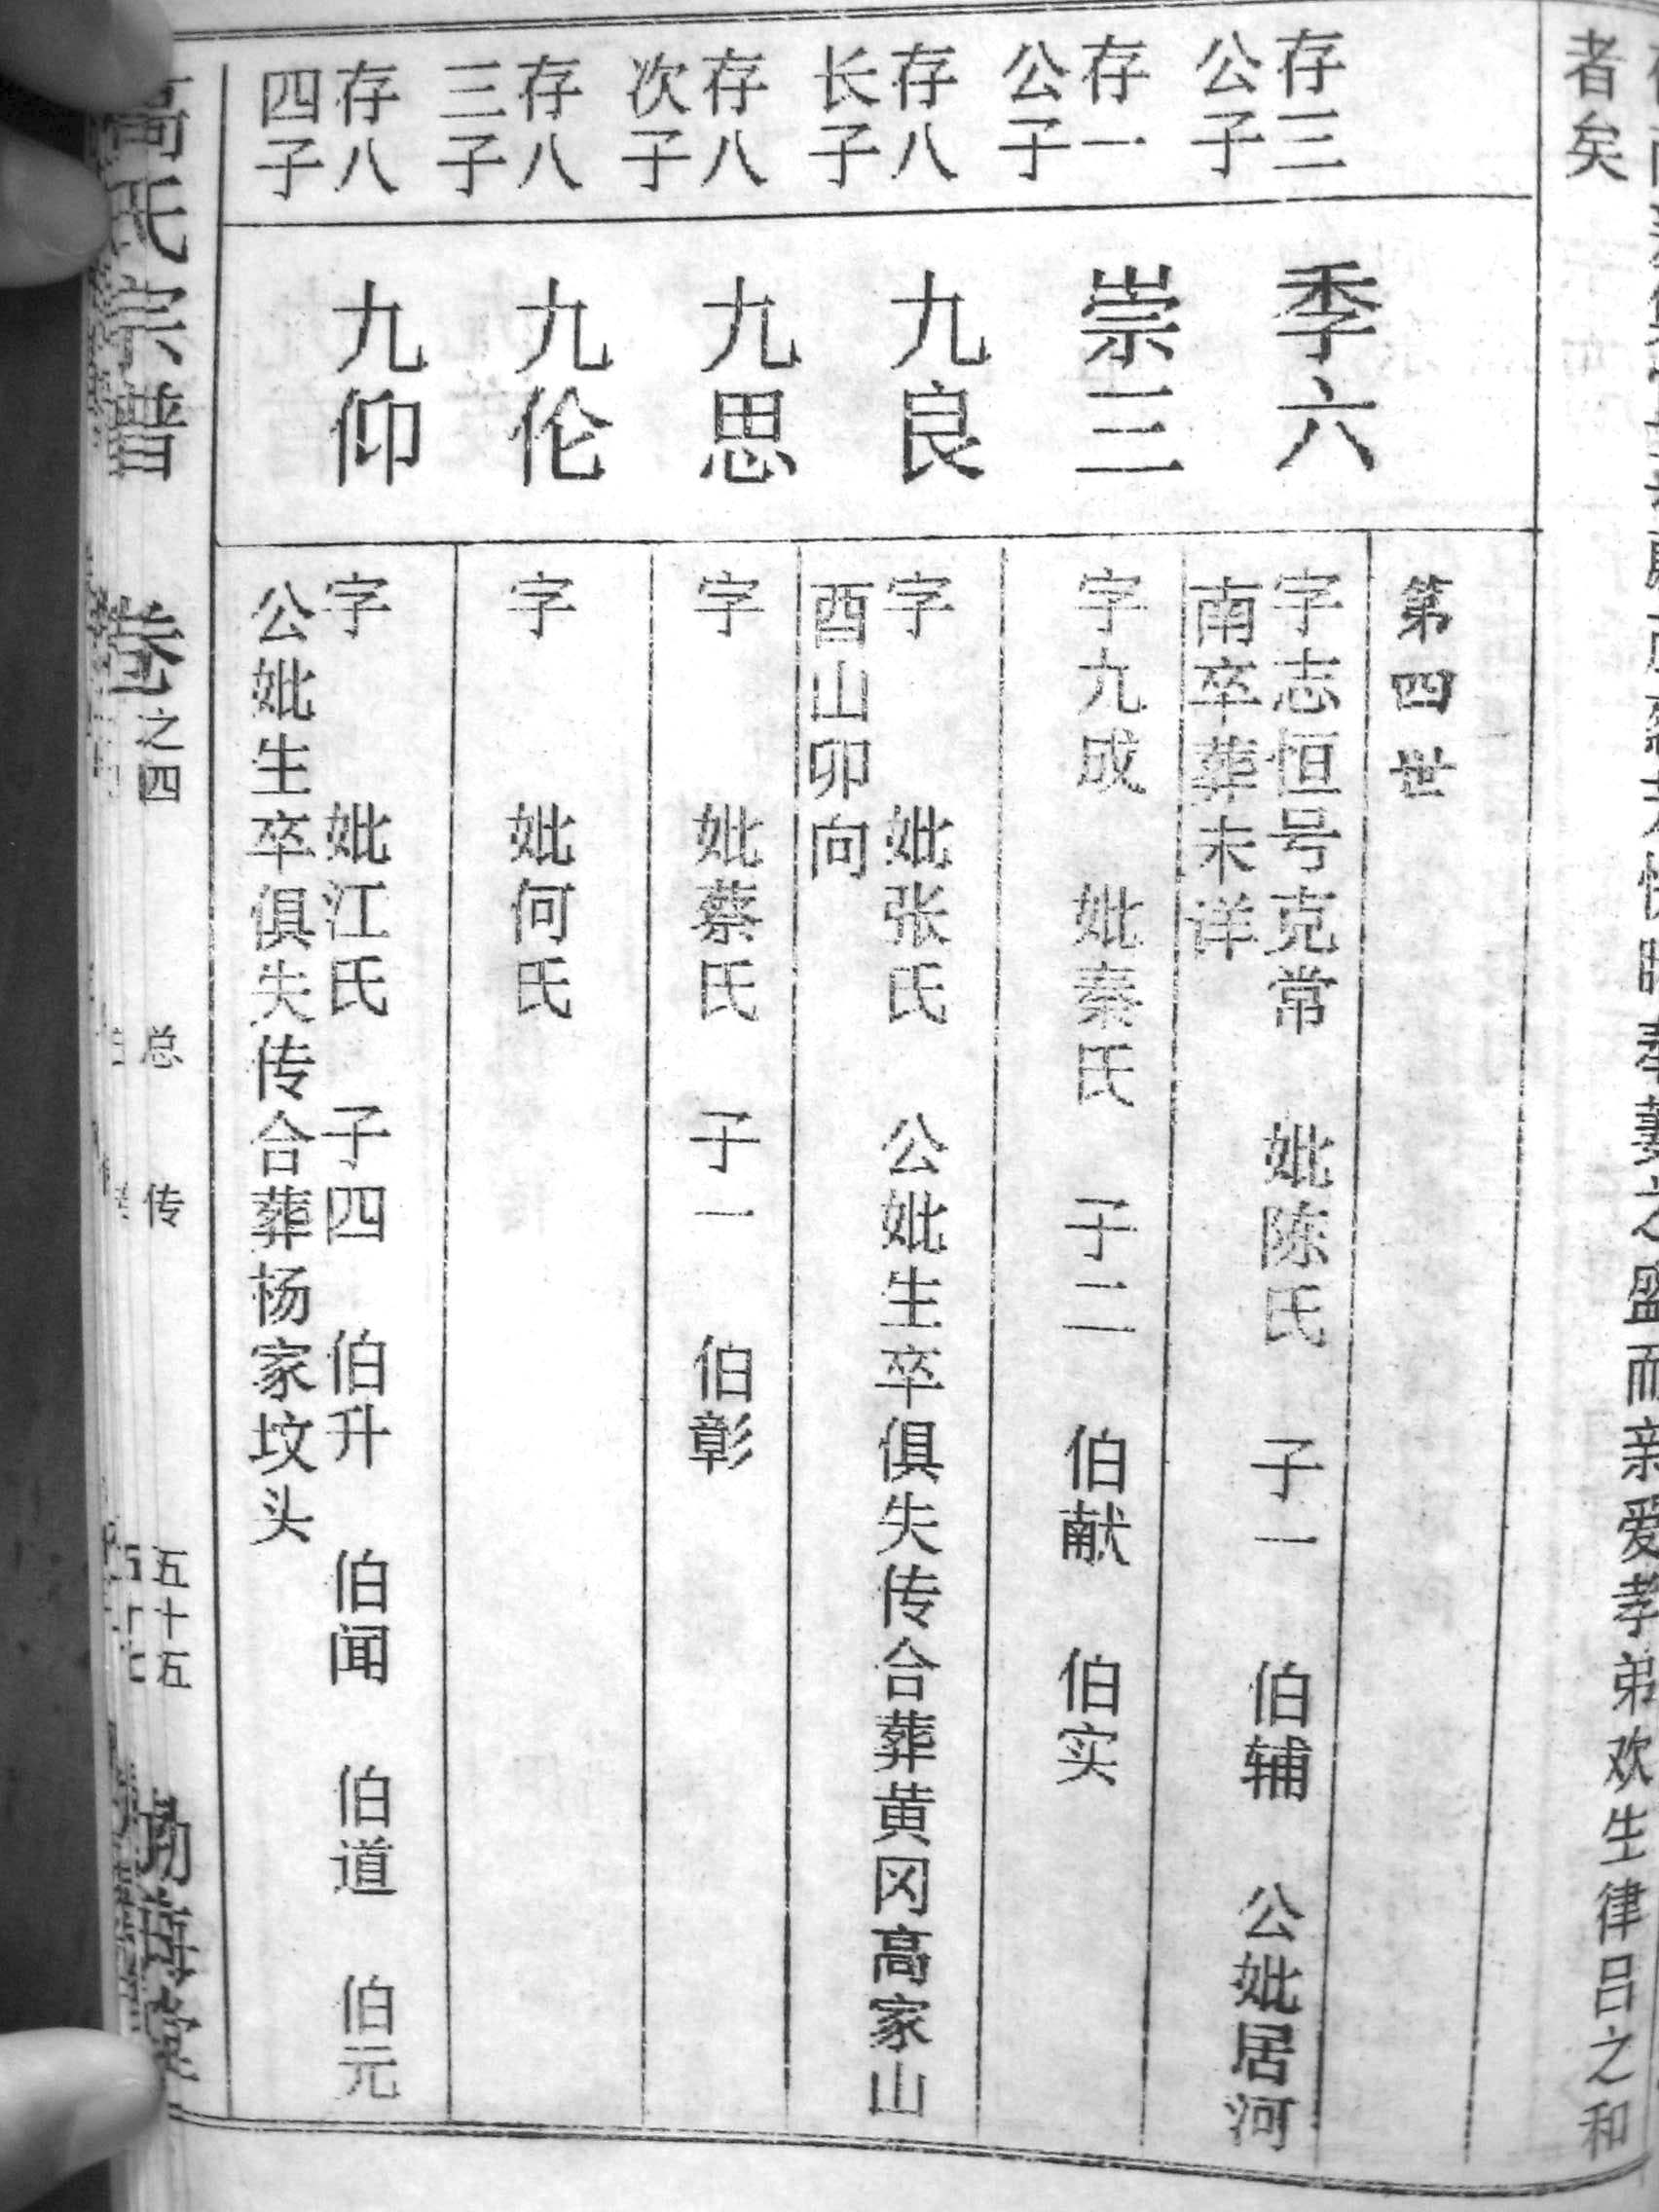 者矣
第四世
存三
公子
季六
字志恒号克常 妣陈氏 子一 伯辅 公妣居河
南卒葬未详
存一
公子
崇三
字九成 妣秦氏 子二 伯献 伯实
存八
长子
九良
字 妣张氏 公妣生卒俱失传合葬黄冈高家山
酉山卯向
存八
次子
九思
字 妣蔡氏 子一 伯彰
存八
三子
九伦
字 妣何氏
存八
四子
九仰
字 妣江氏 子四 伯升 伯闻 伯道 伯元
公妣生卒俱失传合葬杨家坟头
高氏宗谱 卷之四 总传 五十五